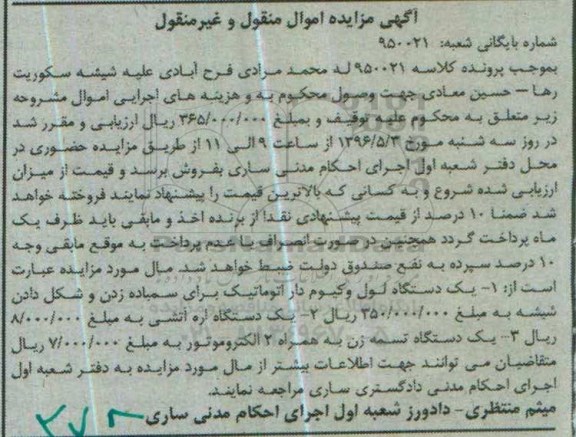 آگهی مزایده اموال منقول و غیرمنقول
شماره بایگانی شعبه: ۹۵۰۰۲۱
بموجب پرونده کلاسه ۹۵۰۰۲۱ له محمد مرادی فرح آبادی علیه شیشه سکوریت
رها – حسین معادی جهت وصول محکوم به و هزینه های اجرایی اموال مشروحه
زیر متعلق به محکوم علیه توقیف و بمبلغ ۳۶۵/۰۰۰/۰۰۰ ریال ارزیابی و مقرر شد
در روز سه شنبه مورخ ۱۳۹۶/۵/۳ از ساعت ۹ الی ۱۱ از طریق مزایده حضوری در
محل دفتر شعبه اول اجرای احکام مدنی ساری بفروش برسد و قیمت از میزان
ارزیابی شده شروع و به کسانی که بالاترین قیمت را پیشنهاد نمایند فروخته خواهد
شد ضمنا ۱۰ درصد از قیمت پیشنهادی نقدا از برنده اخذ و مابقی باید ظرف یک
ماه پرداخت گردد همچنین در صورت انصراف یا عدم پرداخت به موقع مابقی وجه
۱۰ درصد سپرده به نفع صندوق دولت ضبط خواهد شد. مال مورد مزایده عبارت
است از: ۱- یک دستگاه لول وکیوم دار اتوماتیک برای سمباده زدن و شکل دادن
شیشه به مبلغ ۳۵۰/۰۰۰/۰۰۰ ریال ۲- یک دستگاه اره آتشی به مبلغ ۸/۰۰۰/۰۰۰
ریال ۳- یک دستگاه تسمه زن به همراه ۲ الکتروموتور به مبلغ ۷/۰۰۰/۰۰۰ ریال
متقاضیان می توانند جهت اطلاعات بیشتر از مال مورد مزایده به دفتر شعبه اول
اجرای احکام مدنی دادگستری ساری مراجعه نمایند.
میثم منتظری- دادورز شعبه اول اجرای احکام مدنی ساری